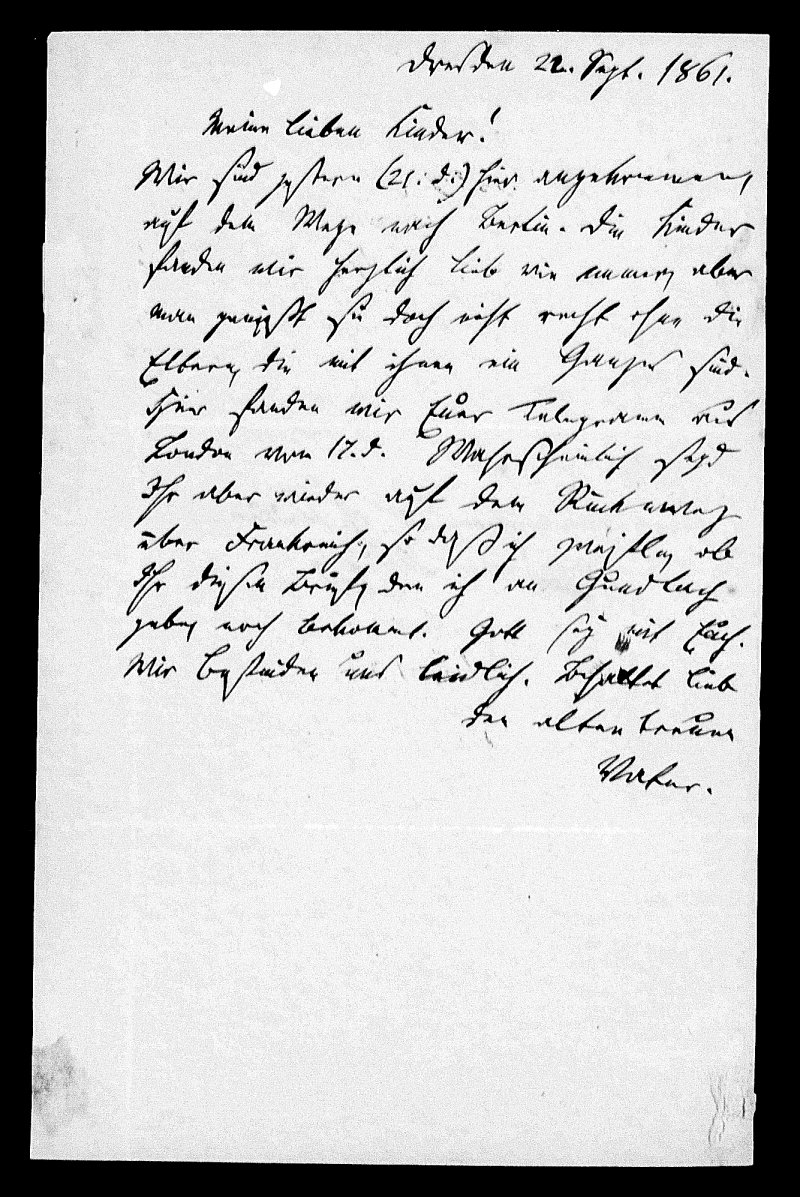 Dresden 22. Sept. 1861.
Meine lieben Kinder!
Wir sind gestern (21. d.) hier angekommen,
auf dem Wege nach Berlin. Die Kinder
fanden wir herzlich lieb wie immer, aber
man genießt sie doch nicht recht ohne die
Eltern, die mit ihnen ein Ganzes sind.
Hier fanden wir Euer Telegramm aus
London vom 17. d. Wahrscheinlich seyd
Ihr aber wieder auf dem Rückweg
über Frankreich, so daß ich zweifle, ob
Ihr diesen Brief, den ich an Gundlach
gebe, noch bekommt. Gott sey mit Euch.
Wir befinden uns leidlich. Behaltet lieb
den alten treuen
Vater.